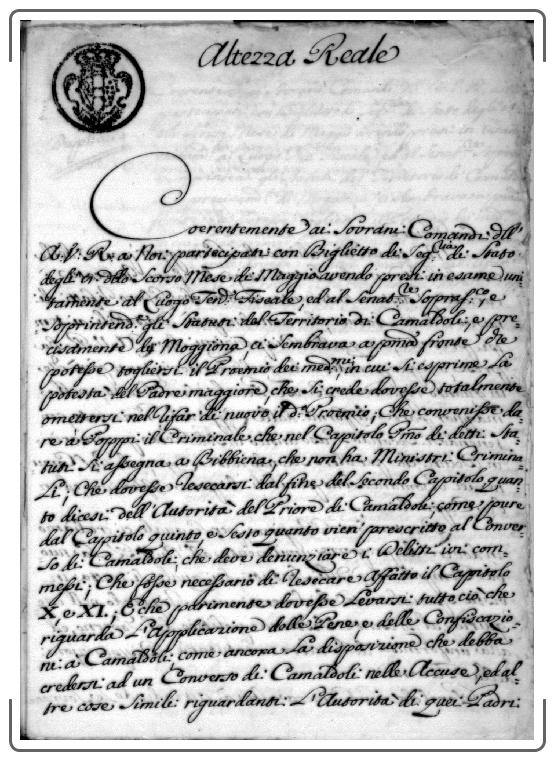 Altezza Reale
Coerentemente ai Sovrani Comandi dell'
A. V. R. a Noi partecipati con Biglietto di Seg.ria di Stato
degli dello Scorso Mese di Maggio avendo presi in esame uni-
tamente al Luogo Ten.te Fiscale, ed al Senat.re Sopras.co, e
Soprintend.e gli Statuti del Territorio di Camaldoli, e pre-
cisamente di Moggiona, ci Sembrava a p̃ma fronte che
potesse togliersi il Proemio dei med.mi in cui Si esprime La
potestà del Padre maggiore, che Si crede dovesse totalmente
omettersi nel rifar di nuovo il d.o Proemio; Che convenisse da-
re a Poppi il Criminale, che nel Capitolo P̃mo di detti Sta-
tuti Si assegna a Bibbiena, che non ha Ministri Crimina-
li; Che dovesse resecarsi dal fine del Secondo Capitolo quan-
to dicesi dell'Autorità del Priore di Camaldoli, come pure
dal Capitolo quinto, e Sesto quanto vien prescritto al Conver-
so di Camaldoli, che deve denunziare i Delitti ivi com-
messi; Che fosse necessario di resecare affatto il Capitolo
X, e XI.; E che parimente dovesse Levarsi tutto ciò, che
riguarda L'Applicazione delle Pene, e delle Confiscazio-
ni a Camaldoli, come ancora La disposizione che debba
credersi ad un Converso di Camaldoli nelle Accuse, ed al-
tre cose Simili riguardanti L'Autorità di quei Padri.